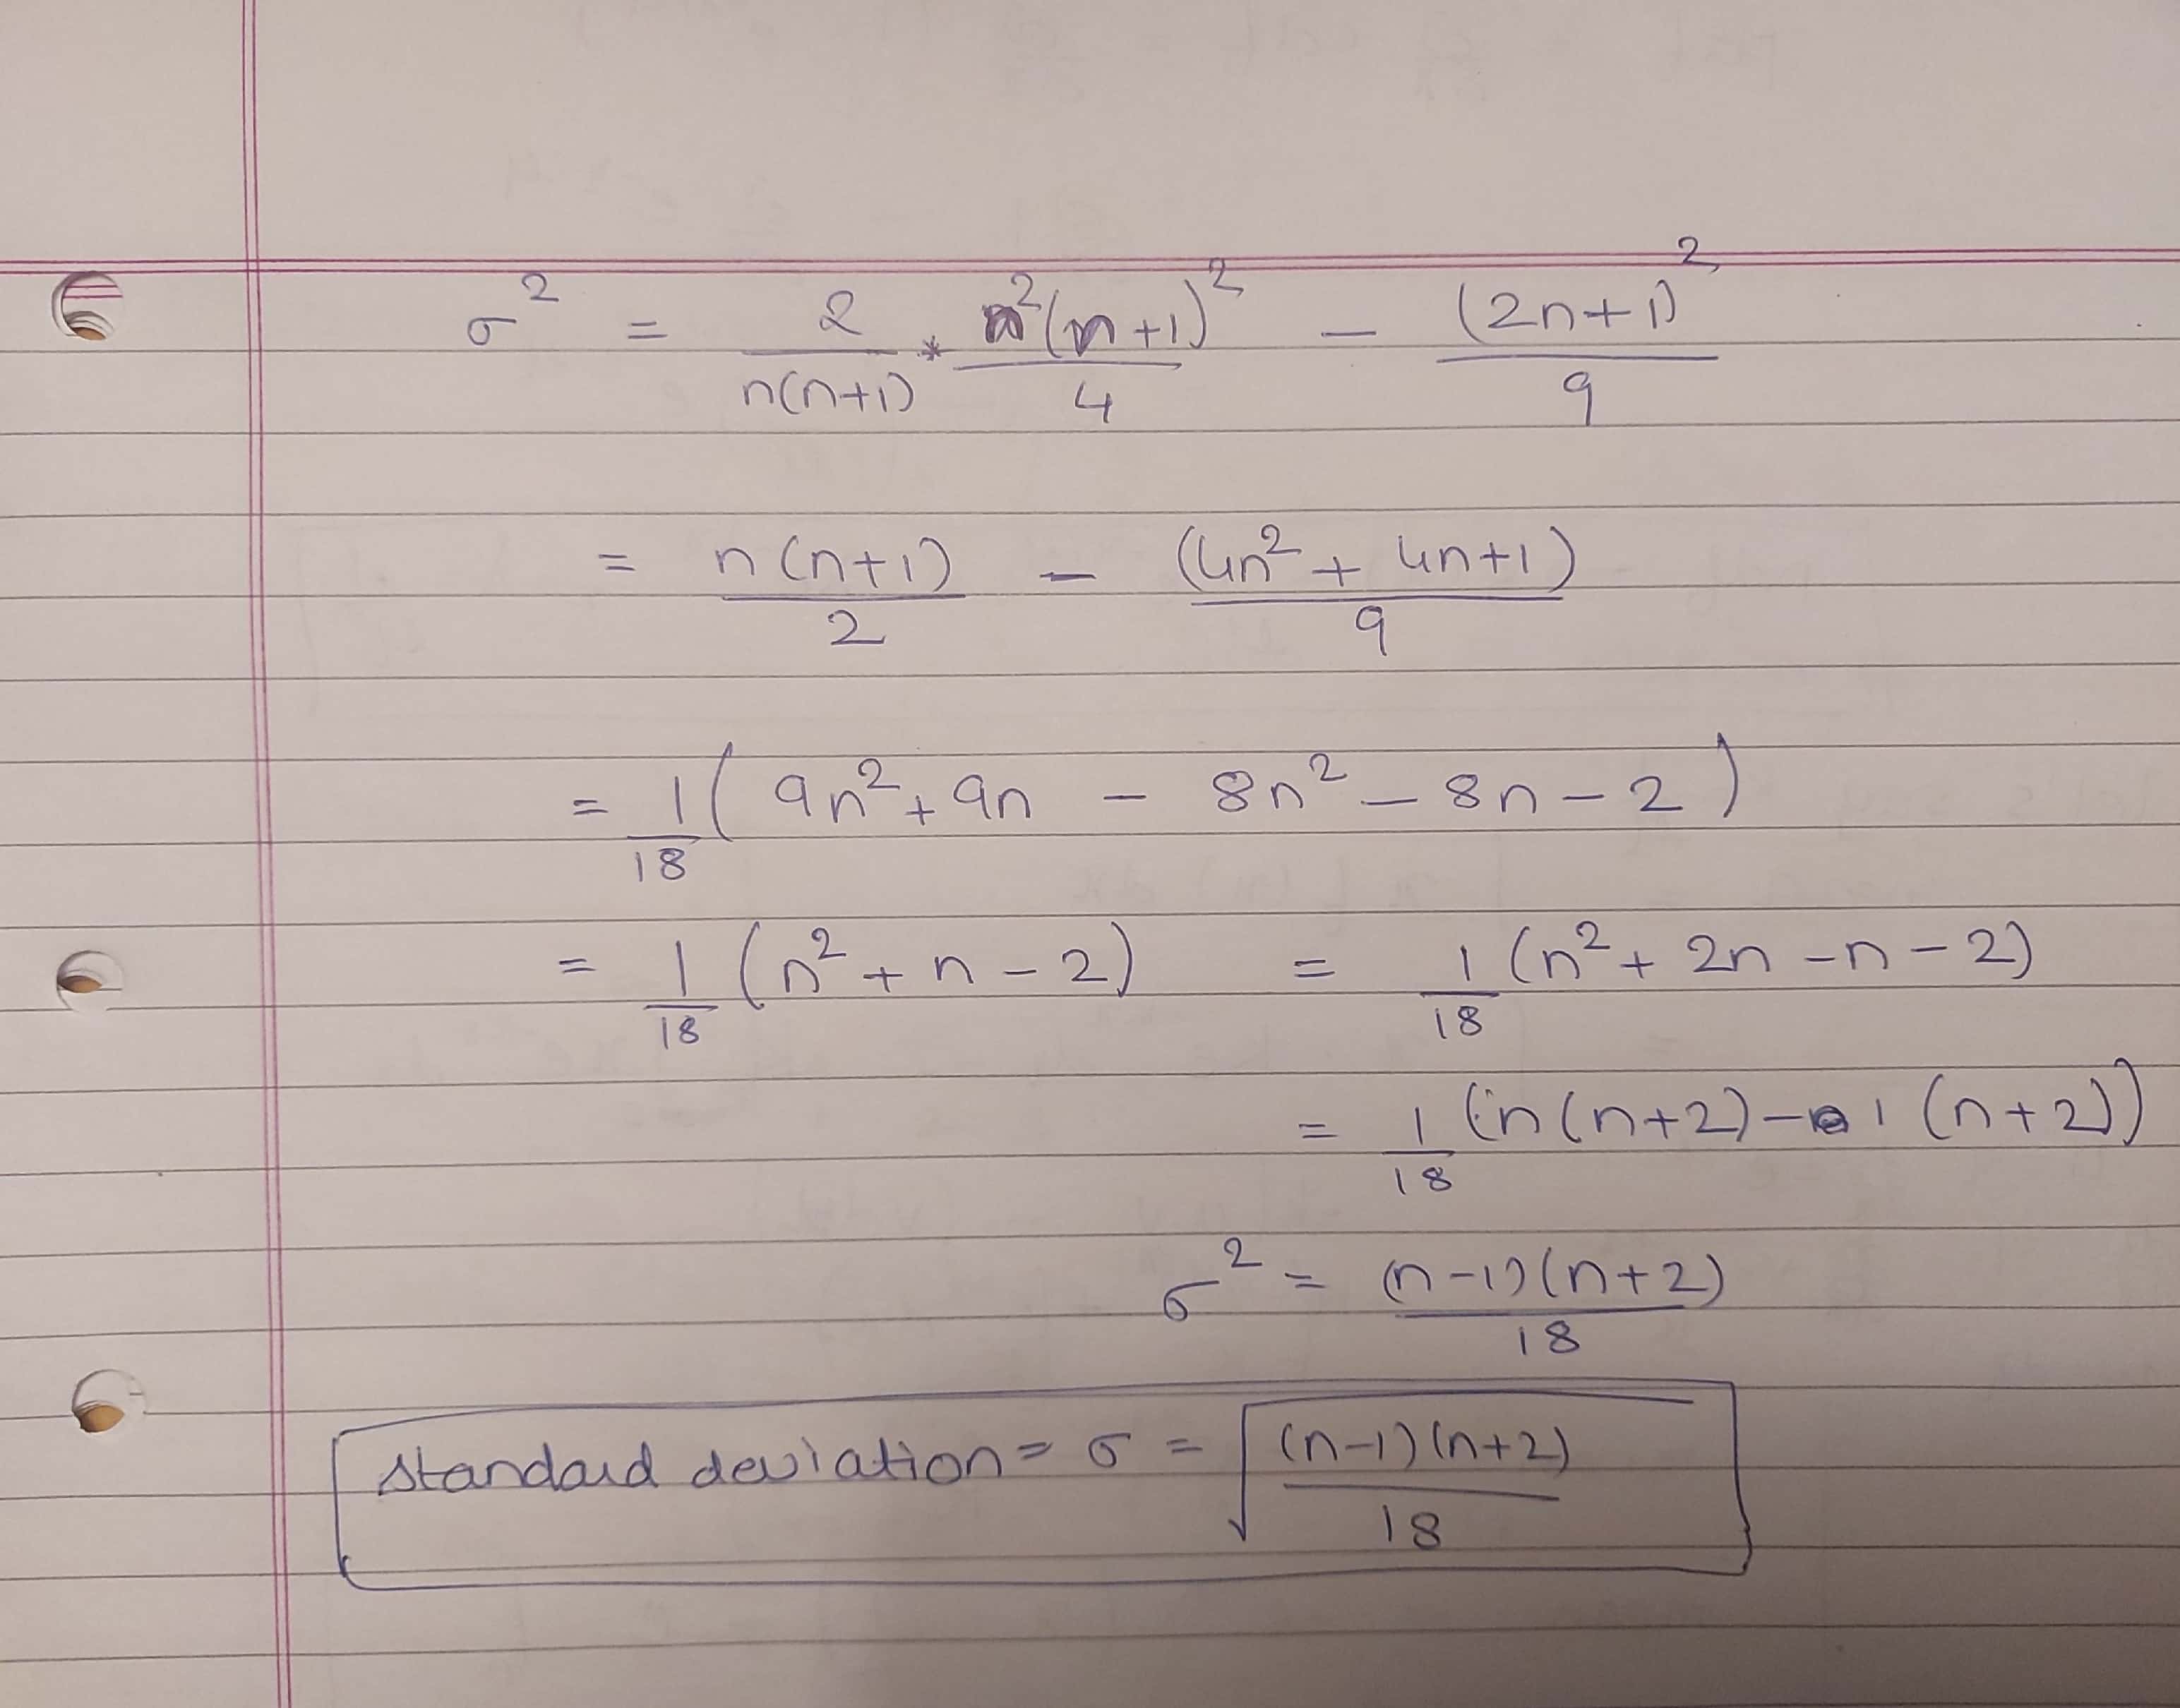 σ² = 2/n(n+1) * n²(n+1)²/4 – (2n+1)²/9
= n(n+1)/2 – (4n² + 4n+1)/9
= 1/18 ( 9n² + 9n – 8n² – 8n – 2 )
= 1/18 (n² + n – 2) = 1/18 (n² + 2n – n – 2)
= 1/18 (n(n+2) – 1 (n+2))
σ² = (n–1)(n+2)/18
standard deviation = σ = √((n–1)(n+2)/18)